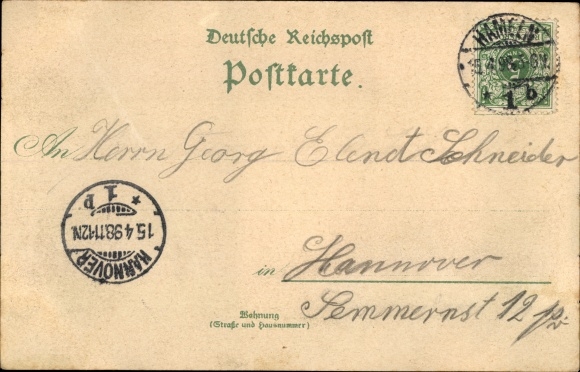 Deutsche Reichspost
Postkarte.
HAMELN
* 1 b
An Herrn Georg Schneider
HANNOVER
15.4.98.11-12N.
* 1 p
in Hannover
12
Wohnung
(Straße und Hausnummer)